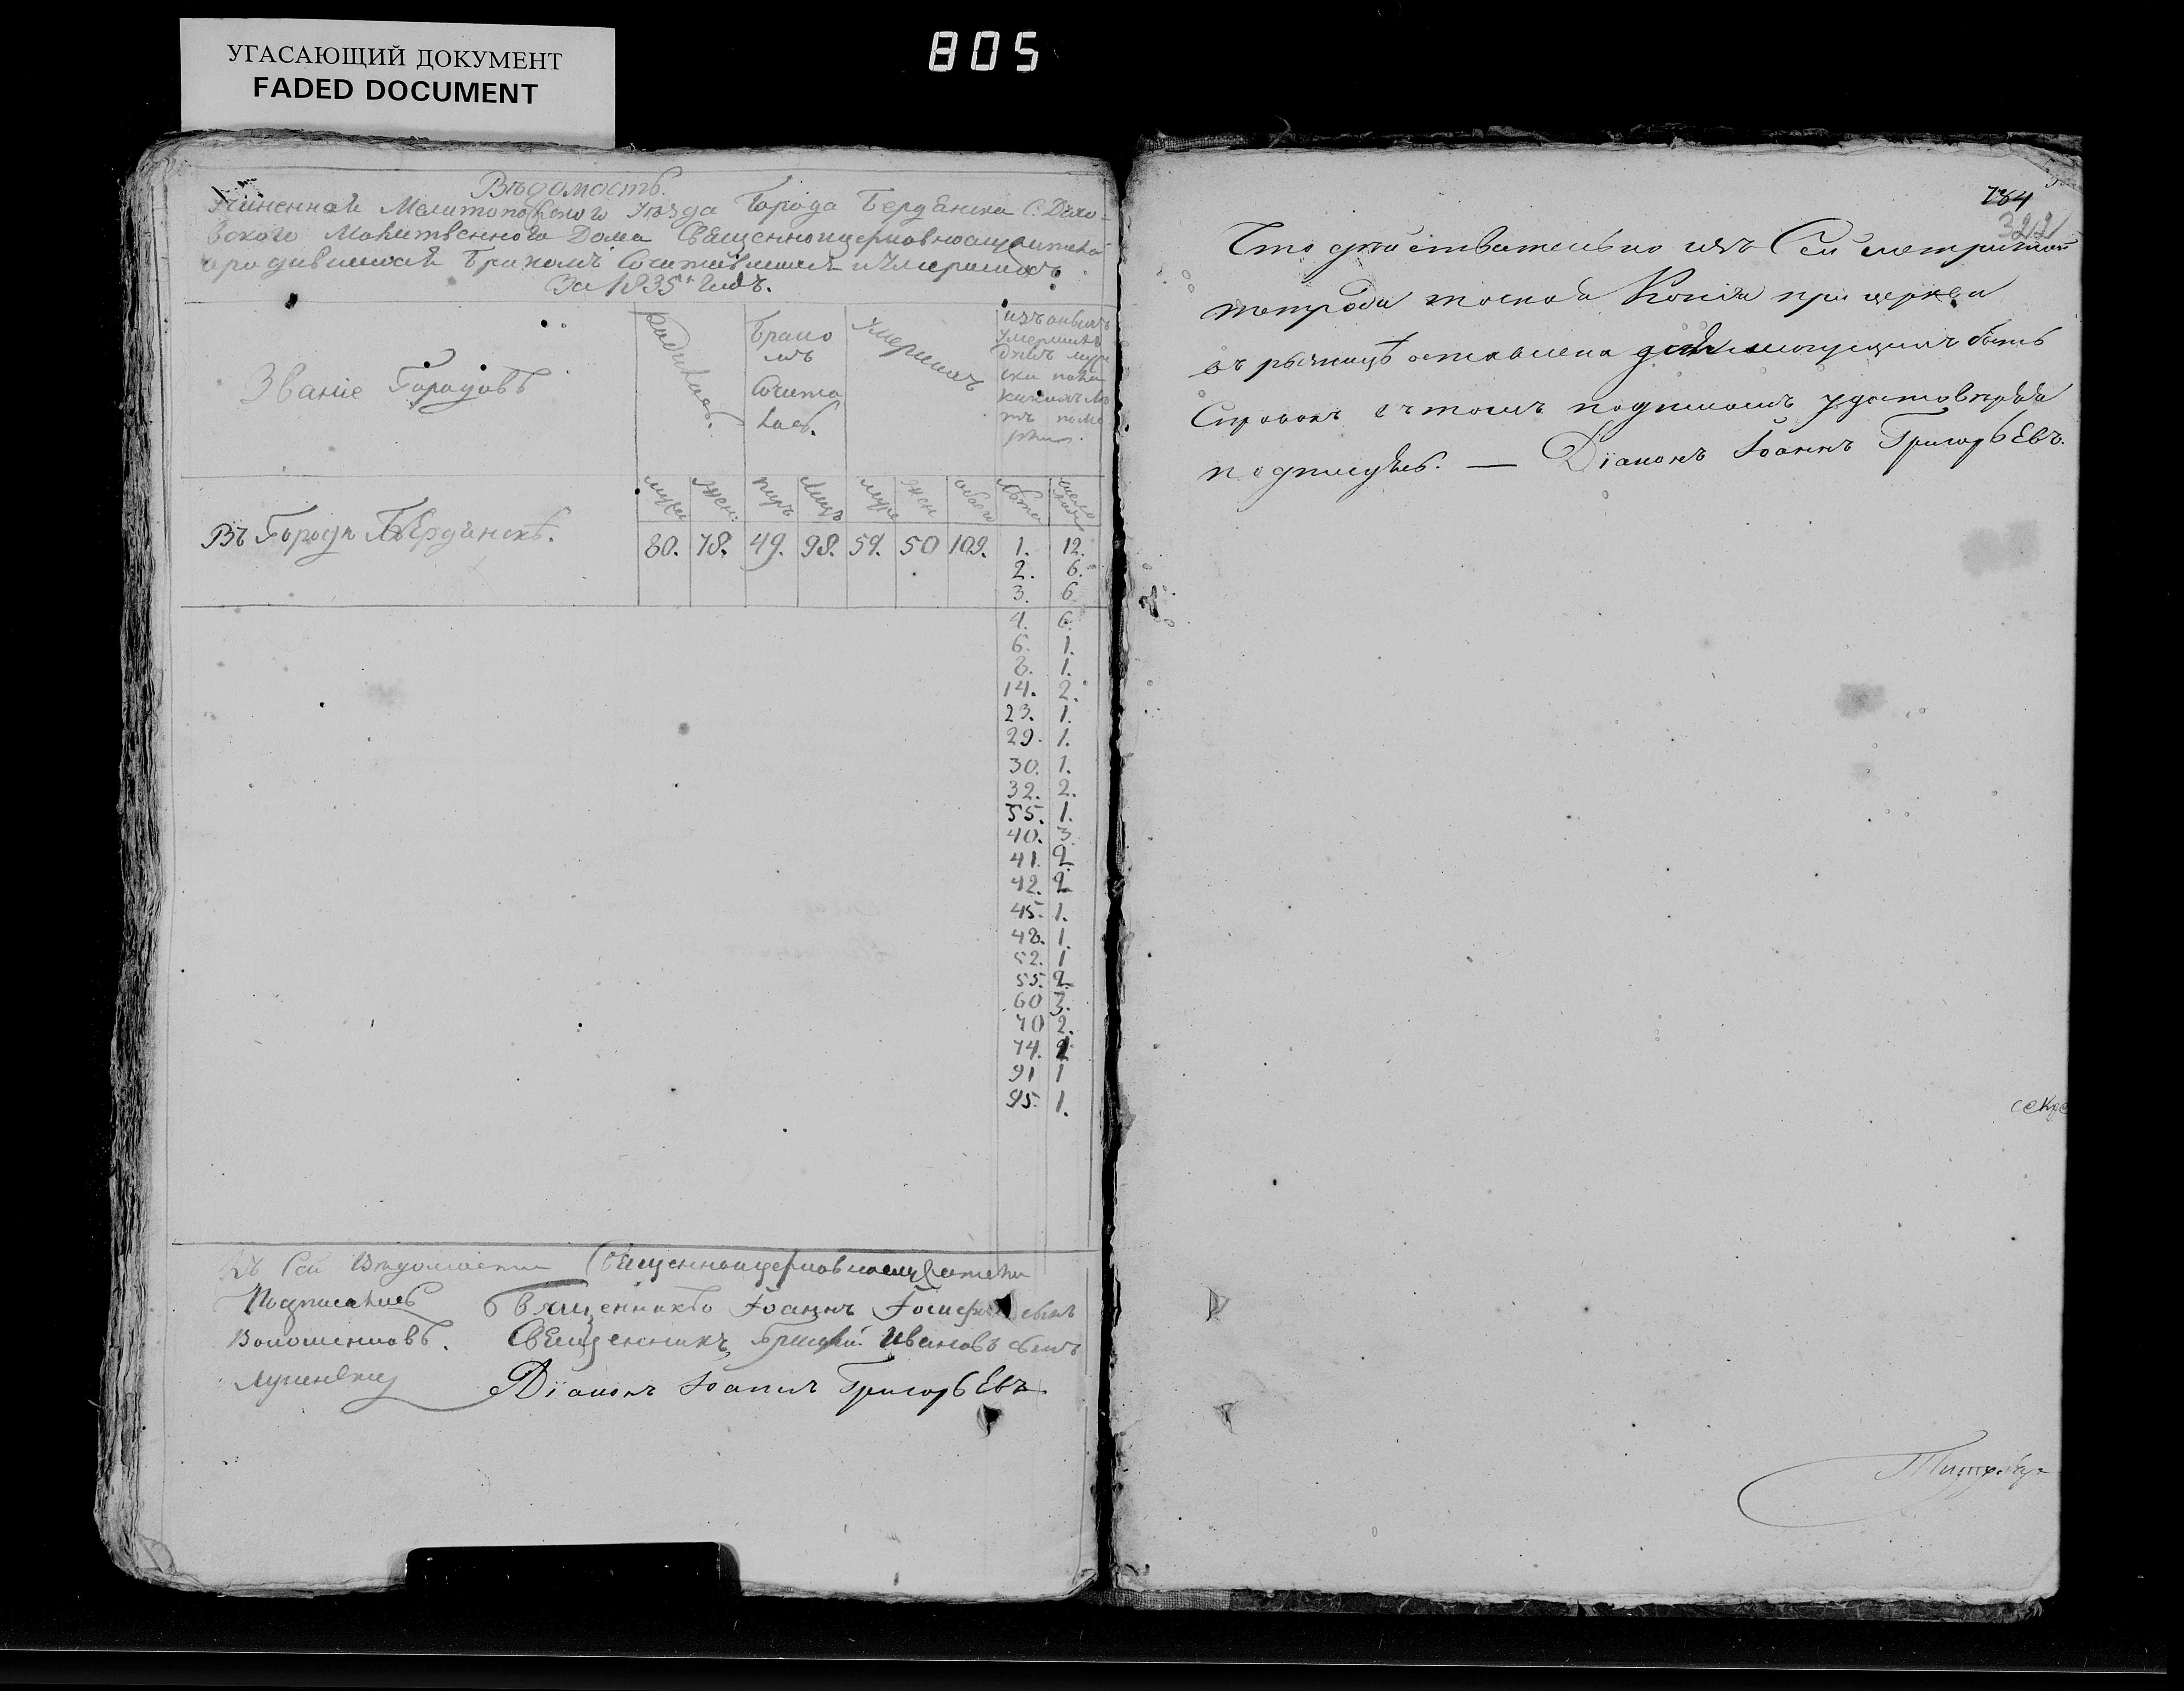 УГАСАЮЩИЙ ДОКУМЕНТ
FADED DOCUMENT
805
Вѣдомость.
Учиненная Мелитопольского Уѣзда Города Бердянска С: Духо-
вского Молитвенного Дома Священноцерковнослужителями
о родившихся Бракомъ Сочетавшихся и Умершихъ
За 1835й Годъ.
Званіе Городовъ
Родилось.
Брако
мъ
Сочета
лось.
Умершихъ
изъ оныхъ
Умершихъ
муже
ска пола
мужеска
жен:
паръ
лицъ
муже
жен
обоего
лѣта
Въ Городѣ Бердянскѣ.
80. 78. 49. 98. 59. 50 109. 1. 12.
2. 6.
3. 6
4. 6.
6. 1.
8. 1.
14. 2.
23. 1.
29. 1.
30. 1.
32. 2.
35. 1.
40. 3.
41. 2
42. 2
45. 1.
48. 1.
52. 1
55. 2
60 3.
70 2.
74. 2
91 1
95. 1.
Къ Сей Вѣдомости Священноцерковнослужители
Подписались Священникъ Іоаннъ сынъ
Волошиновъ. Священникъ Ивановъ сынъ
Діаконъ Іоаннъ Григорьевъ
784
322
Что дѣйствительно изъ Сей метрической
тетради точная Копія при церкви
въ ризницѣ оставлена для могущихъ быть
Справокъ въ томъ подписомъ удостовѣряя
подписуюсь. — Діаконъ Іоаннъ Григорьевъ.
секре